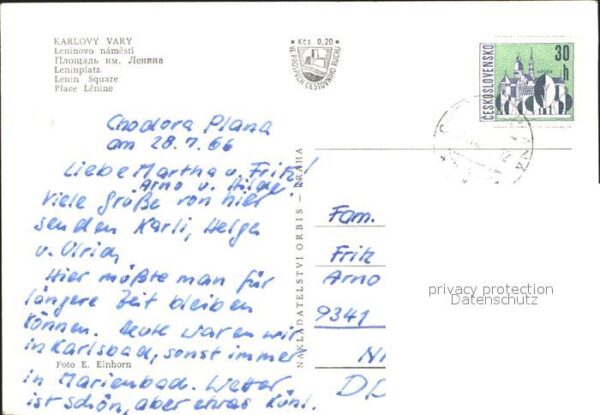 KARLOVY VARY
Leninovo náměstí
Площадь им. Ленина
Leninplatz
Lenin Square
Place Lénine
Kčs 0,20
VE PROSPĚCH CESTOVNÍHO RUCHU
ČESKOSLOVENSKO
30 h
Chodova Plana
am 28.7.66
Liebe Martha u. Fritz!
Arno u. Hilde!
Viele Grüße von hier
senden Karli, Helga
u. Ulrich
Hier müßte man für
längere Zeit bleiben
können. Heute waren wir
in Karlsbad, sonst immer
in Marienbad. Wetter
ist schön, aber etwas kühl.
Foto E. Einhorn
NAKLADATELSTVÍ ORBIS - PRAHA
Fam.
Fritz
Arno
9341
DD
privacy protection
Datenschutz